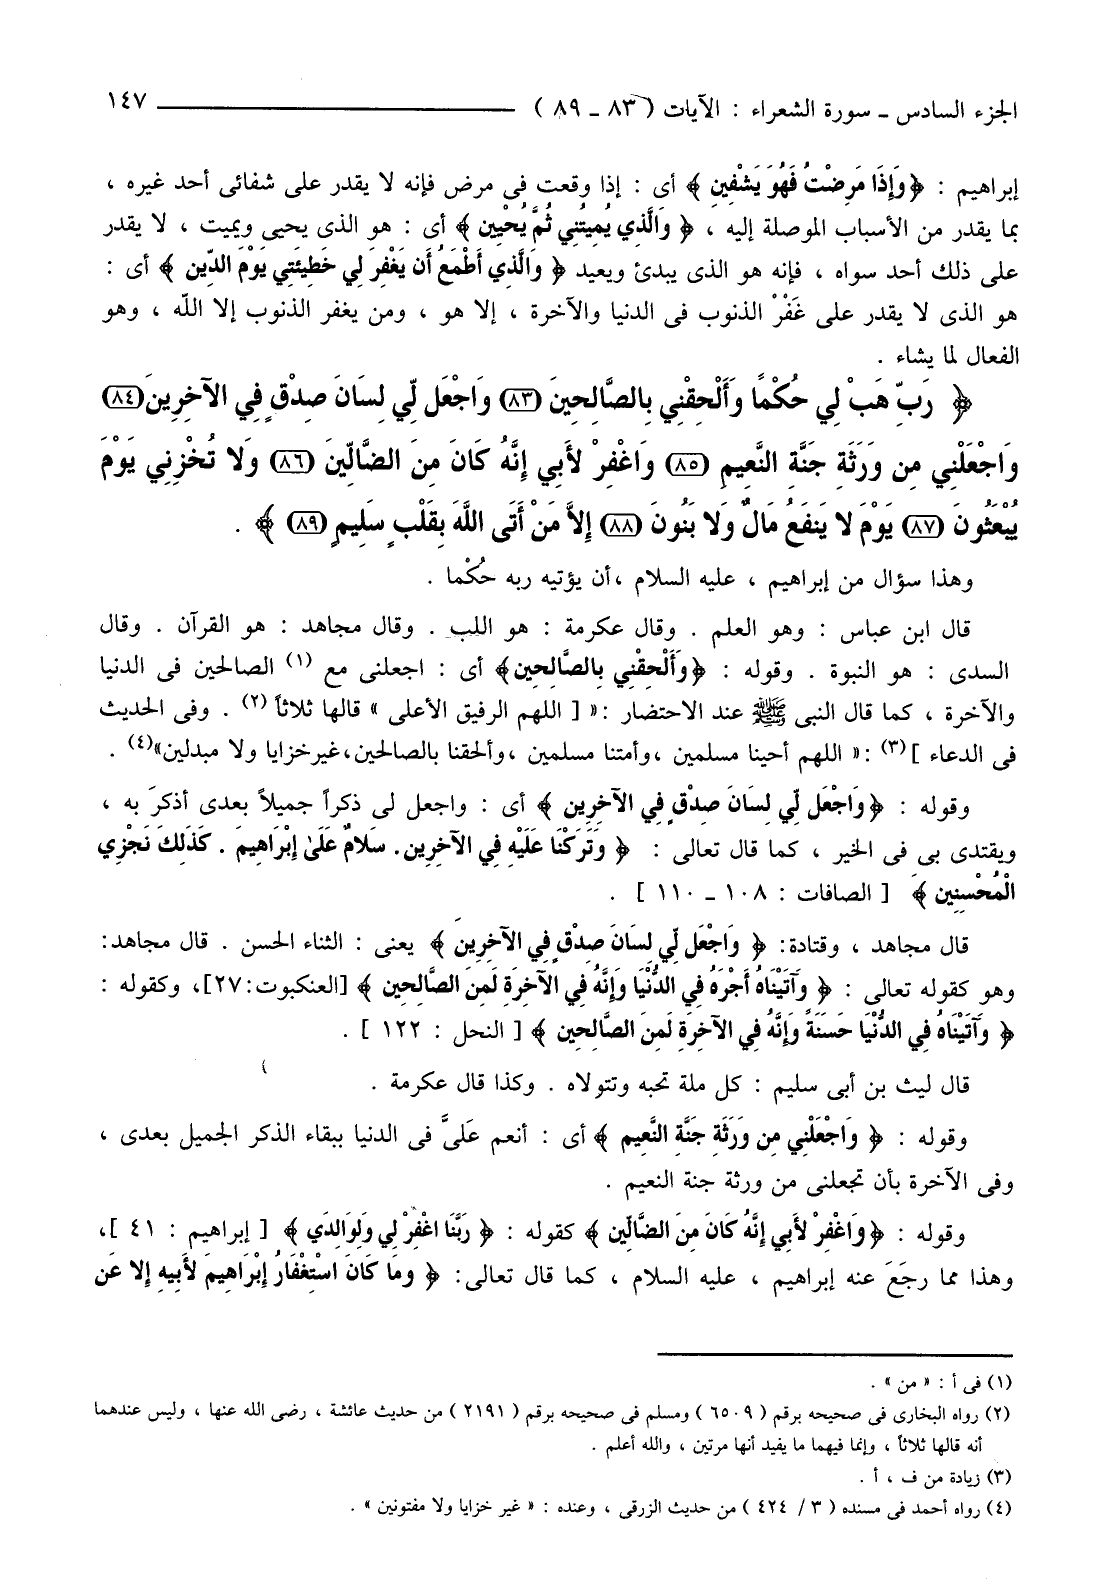 الجزء السادس ـ سورة الشعراء : الآيات ( ٨٣ ـ ٨٩ ) ١٤٧
إبراهيم : ﴿ وَإِذَا مَرِضْتُ فَهُوَ يَشْفِينِ ﴾ أى : إذا وقعت فى مرض فإنه لا يقدر على شفائى أحد غيره ،
بما يقدر من الأسباب الموصلة إليه ، ﴿ وَالَّذِي يُمِيتُنِي ثُمَّ يُحْيِينِ ﴾ أى : هو الذى يحيى ويميت ، لا يقدر
على ذلك أحد سواه ، فإنه هو الذى يبدئ ويعيد ﴿ وَالَّذِي أَطْمَعُ أَن يَغْفِرَ لِي خَطِيئَتِي يَوْمَ الدِّينِ ﴾ أى :
هو الذى لا يقدر على غَفْرْ الذنوب فى الدنيا والآخرة ، إلا هو ، ومن يغفر الذنوب إلا الله ، وهو
الفعال لما يشاء .
﴿ رَبِّ هَبْ لِي حُكْمًا وَأَلْحِقْنِي بِالصَّالِحِينَ (٨٣) وَاجْعَل لِّي لِسَانَ صِدْقٍ فِي الآخِرِينَ (٨٤)
وَاجْعَلْنِي مِن وَرَثَةِ جَنَّةِ النَّعِيمِ (٨٥) وَاغْفِرْ لأَبِي إِنَّهُ كَانَ مِنَ الضَّالِّينَ (٨٦) وَلا تُخْزِنِي يَوْمَ
يُبْعَثُونَ (٨٧) يَوْمَ لا يَنفَعُ مَالٌ وَلا بَنُونَ (٨٨) إِلاَّ مَنْ أَتَى اللَّهَ بِقَلْبٍ سَلِيمٍ (٨٩) ﴾ .
وهذا سؤال من إبراهيم ، عليه السلام ،أن يؤتيه ربه حُكْما .
قال ابن عباس : وهو العلم . وقال عكرمة : هو اللب . وقال مجاهد : هو القرآن . وقال
السدى : هو النبوة . وقوله : ﴿وَأَلْحِقْنِي بِالصَّالِحِينَ﴾ أى : اجعلنى مع (١) الصالحين فى الدنيا
والآخرة ، كما قال النبى ﷺ عند الاحتضار :« [ اللهم الرفيق الأعلى » قالها ثلاثاً (٢) . وفى الحديث
فى الدعاء ](٣) :« اللهم أحينا مسلمين ،وأمتنا مسلمين ،وألحقنا بالصالحين،غيرخزايا ولا مبدلين»(٤) .
وقوله : ﴿ وَاجْعَل لِّي لِسَانَ صِدْقٍ فِي الآخِرِينَ ﴾ أى : واجعل لى ذكراً جميلاً بعدى أذكرَ به ،
ويقتدى بى فى الخير ، كما قال تعالى : ﴿ وَتَرَكْنَا عَلَيْهِ فِي الآخِرِينَ. سَلامٌ عَلَىٰ إِبْرَاهِيمَ . كَذَلِكَ نَجْزِي
الْمُحْسِنِينَ ﴾ [ الصافات : ١٠٨ ـ ١١٠ ] .
قال مجاهد ، وقتادة: ﴿ وَاجْعَل لِّي لِسَانَ صِدْقٍ فِي الآخِرِينَ ﴾ يعنى : الثناء الحسن . قال مجاهد:
وهو كقوله تعالى : ﴿ وَآتَيْنَاهُ أَجْرَهُ فِي الدُّنْيَا وَإِنَّهُ فِي الآخِرَةِ لَمِنَ الصَّالِحِينَ ﴾ [العنكبوت:٢٧]، وكقوله :
﴿ وَآتَيْنَاهُ فِي الدُّنْيَا حَسَنَةً وَإِنَّهُ فِي الآخِرَةِ لَمِنَ الصَّالِحِينَ ﴾ [ النحل : ١٢٢ ] .
قال ليث بن أبى سليم : كل ملة تحبه وتتولاه . وكذا قال عكرمة .
وقوله : ﴿ وَاجْعَلْنِي مِن وَرَثَةِ جَنَّةِ النَّعِيمِ ﴾ أى : أنعم عَلىَّ فى الدنيا ببقاء الذكر الجميل بعدى ،
وفى الآخرة بأن تجعلنى من ورثة جنة النعيم .
وقوله : ﴿ وَاغْفِرْ لأَبِي إِنَّهُ كَانَ مِنَ الضَّالِّينَ ﴾ كقوله : ﴿ رَبَّنَا اغْفِرْ لِي وَلِوَالِدَي ﴾ [ إبراهيم : ٤١ ]،
وهذا مما رجَعَ عنه إبراهيم ، عليه السلام ، كما قال تعالى: ﴿ وَمَا كَانَ اسْتِغْفَارُ إِبْرَاهِيمَ لأَبِيهِ إِلا عَن
(١) فى أ : « من » .
(٢) رواه البخارى فى صحيحه برقم ( ٦٥٠٩ ) ومسلم فى صحيحه برقم ( ٢١٩١ ) من حديث عائشة ، رضى الله عنها ، وليس عندهما
أنه قالها ثلاثاً ، وإنما فيهما ما يفيد أنها مرتين ، والله أعلم .
(٣) زيادة من ف ، أ .
(٤) رواه أحمد فى مسنده ( ٣ / ٤٢٤ ) من حديث الزرقى ، وعنده : « غير خزايا ولا مفتونين » .